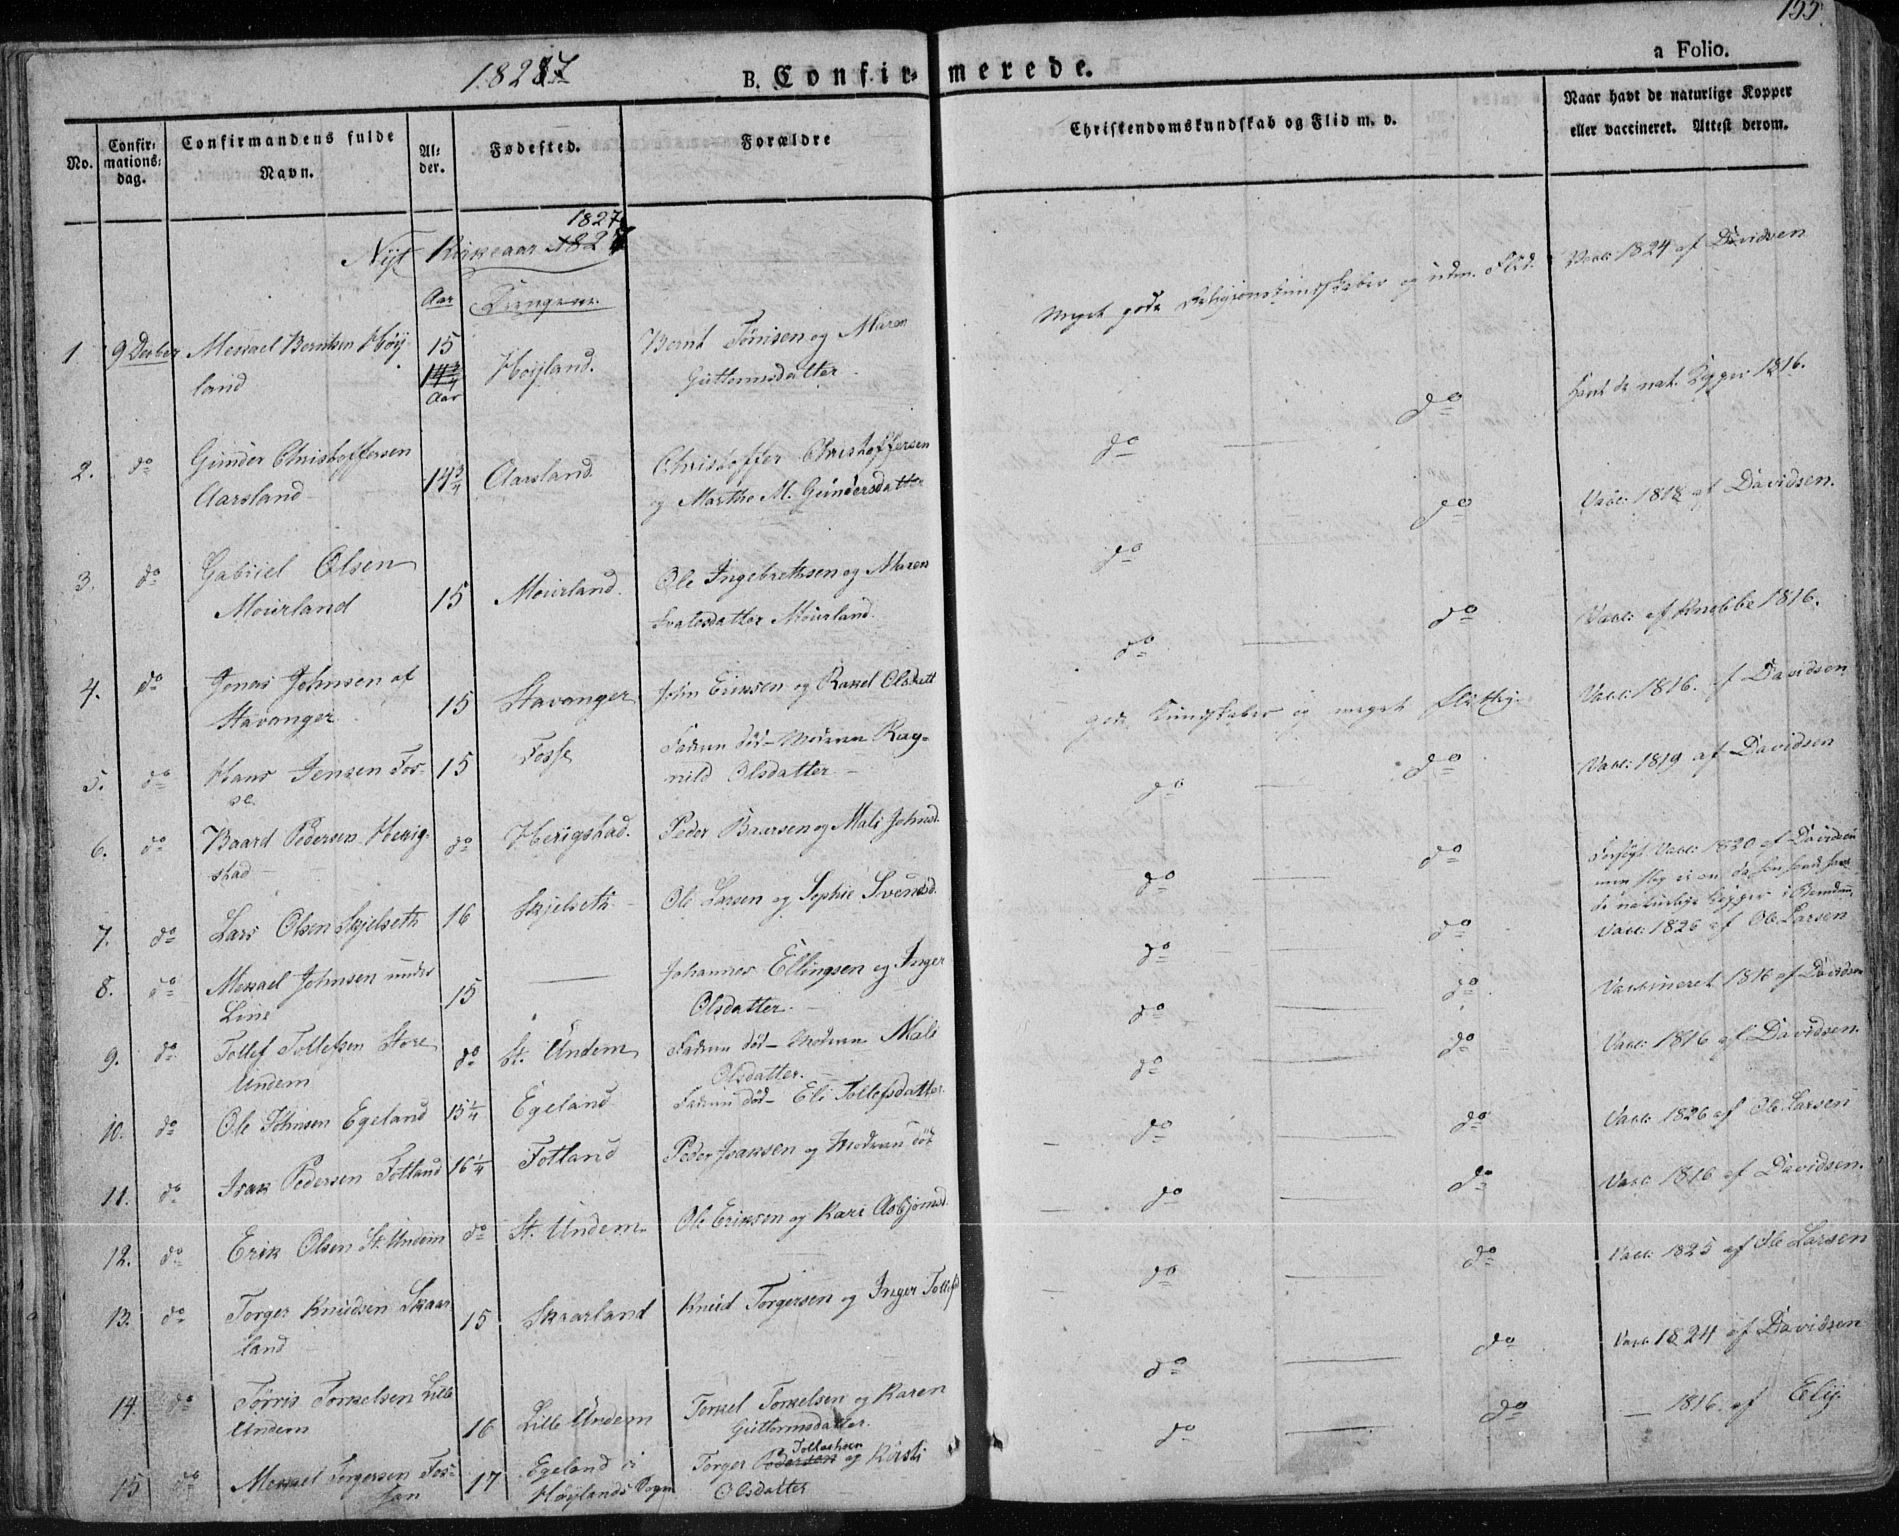 155.
18287
B. Confirmerede.
a Folio.
No.
Confirmationsdag.
Confirmandens fulde Navn.
Alder.
Fødested.
Forældre
Christendomskundskab og Flid m. v.
Naar havt de naturlige Kopper eller vaccineret. Attest derom.
1827
Nyt Kirkeaar 1827
Aar
Drengene
1 9 Decber Mekael Berntsen Høy- 15 Høyland. Bernt Tønisen og Maren Meget gode Religionskundskaber og udm. Flid. Vacc: 1824 af Davidsen
land 14 3/4 Aar Guttormsdatter
2. do Gunder Christoffersen 14 3/4 Aarsland. Christoffer Christoffersen do — do Havt de nat. Kopper 1816.
Aarsland og Martha M. Gundersdatter
3. do Gabriel Olsen 15 Mourland. Ole Ingebrethsen og Maren do — do Vacc: 1818 af Davidsen.
Mourland Mourland.
4. do Jonas Johnsen af 15 Stavanger John Eriksen og Rakel Olsdatt do — do Vacc: af Knebbe 1816.
Stavanger
5. do Hans Jensen Fos- 15 Fosse Faderen død - Moderen Rag- gode Kundskaber og meget flittig. Vacc: 1816. af Davidsen
se nild Olsdatter -
6. do Baard Pedersen Herig- do Herigstad. Peder Baarsen og Mali Johnsd. do — do Vacc: 1819 af Davidsen
stad -
7. do Lars Olsen Skjelseth 16 Skjelseth Ole Larsen og Sophie Svensd. do — do Forsøgt Vacc: 1820 af Davidsen
men slog ei an da han havde havt
de naturlige Kopper i
8. do Mekael Johnsen under 15 — Johannes Ellingsen og Inger do — do Vacc: 1826 af Ole Larsen
Line Olsdatter. -
9. do Tollef Tollefsen Store do St. Undem Faderen død - Moderen Mali do — do Vaccineret 1816 af Davidsen
Undem Olsdatter. -
10. do Ole Johnsen Egeland 15 1/4 Egeland Faderen død - Eli Tollefsdatter do — do Vacc: 1816 af Davidsen.
11. do Isak Pedersen Fotland 16 1/4 Fotland Peder Isaksen og Moderen død do — do Vacc: 1826 af Ole Larsen
12. do Erik Olsen St. Undem do St. Undem Ole Eriksen og Kari Asbjørnsd. do — do Vacc 1816 af Davidsen.
13. do Torger Knudsen Skaar 15 Skaarland Knud Torgersen og Inger Tollefs do — do Vacc: 1825 af Ole Larsen
land
14. do Tørris Torkelsen Lille 16 Lille Undem Torkel Torkelsen og Karen do — do Vacc 1824 af Davidsen
Undem Guttormsdatter.
15 do Mekael Torgersen Fos- 17 Egeland i Torger Pedersen Tollachsen og Kirsti do — do — 1816. af Ely.
san Høylands Sogn Olsdatter